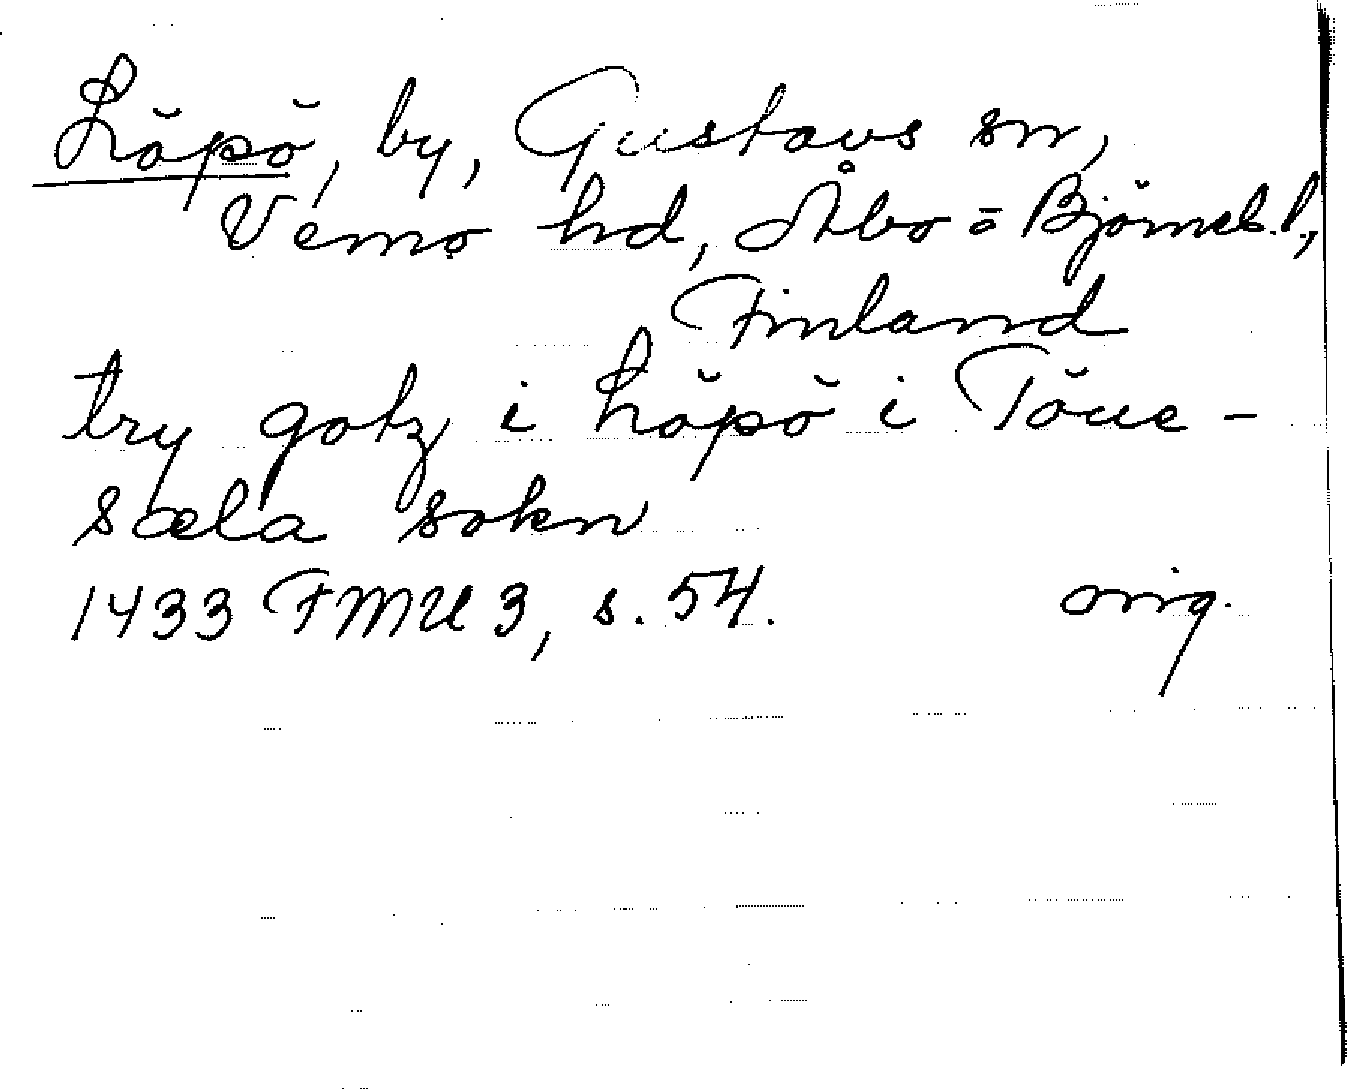 Löpö, by, Gustavs sn,
Vemo hd, Åbo o Björneb. l.,
Finland
try gotz i Löpö i Töue-
sæla sokn
1433 FMU 3, s. 54. orig.